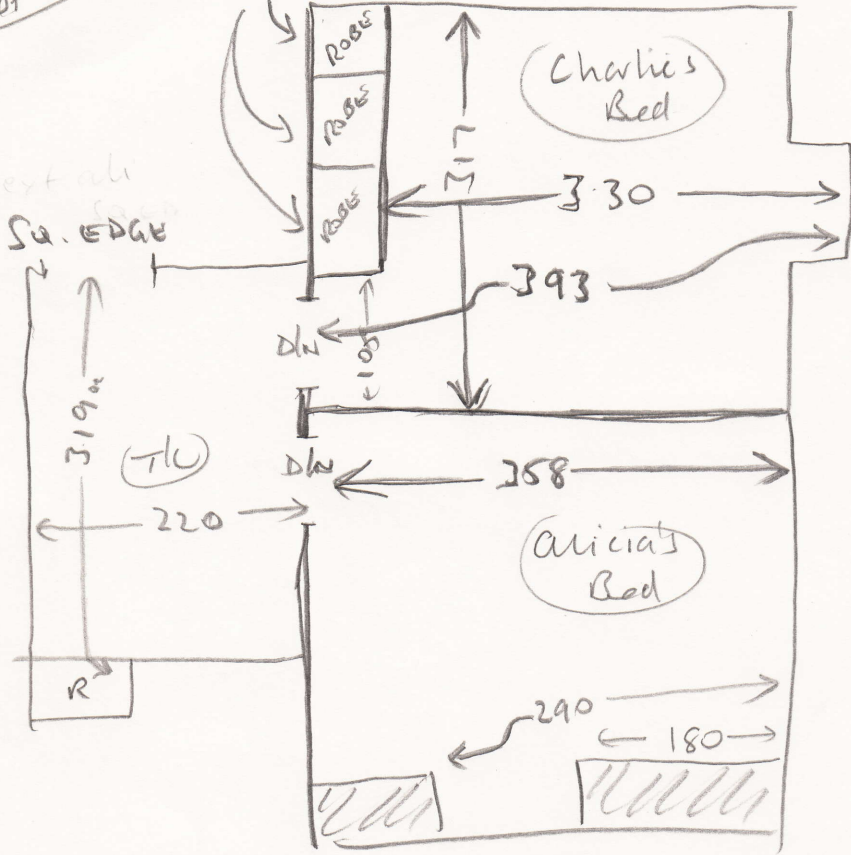 ROBE
ROBE
ROBE
Charlie's
Bed
317
3.30
SQ. EDGE
393
D/N
100
319
T/L
D/N
358
220
Alicia's
Bed
R
290
180